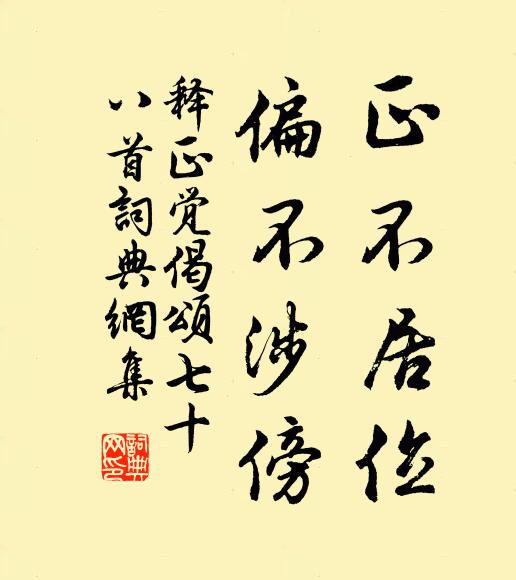 正不居位
偏不涉傍
释正觉偈頌七十
八首詞典網集
詞典網印